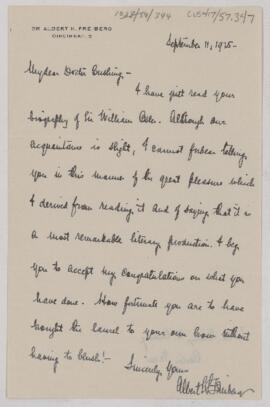 1528/54/344
CUS417/57.347
DR ALBERT H. FREIBERG
CINCINNATI
September 11, 1925-
My dear Doctor Cushing,-
I have just read your
biography of Sir William Osler. Although our
acquaintance is slight, I cannot forbear telling
you in this manner of the great pleasure which
I derived from reading it and of saying that it is
a most remarkable literary production. I beg
you to accept my congratulations on what you
have done. How fortunate you are to have
brought the laurel to your own brow without
having to blush!-
Sincerely Yours
Albert H. Freiberg